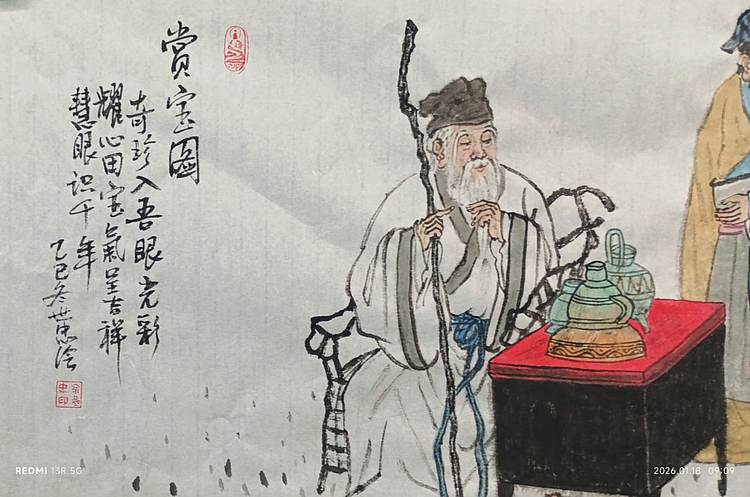 赏宝图
奇珍入吾眼光彩
耀心田宝气呈吉祥
慧眼识千年
乙巳冬
REDMI 13R 5G
2026.01.18 09:09